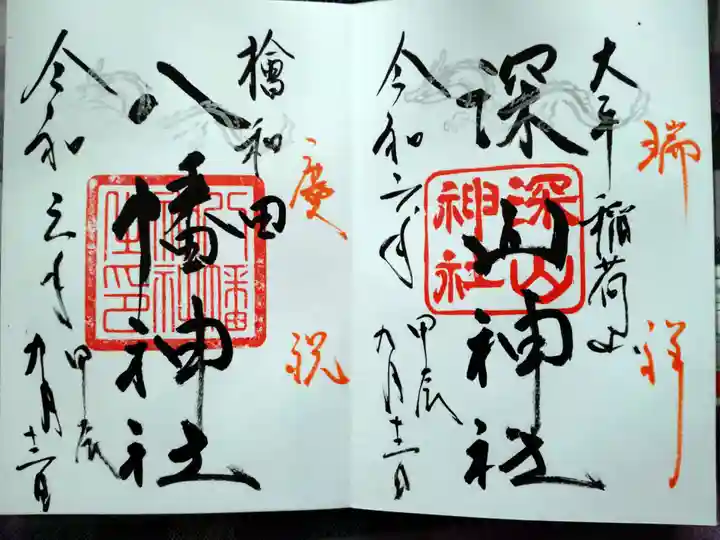 瑞祥
大平稲荷山
深山神社
深山神社
令和六年
甲辰
九月十二日
慶祝
檜和田
八幡神社
令和六年
甲辰
九月十二日